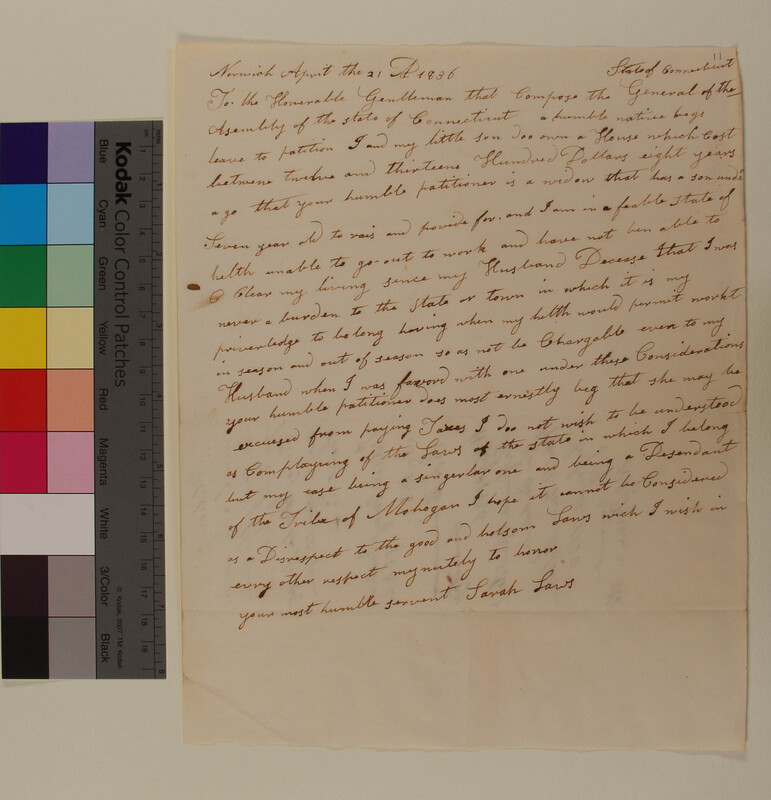 11
Norwich April the 21 AD 1836 State of Connecticut
To. the Honerable Gentleman that Compose the General of the
Asembly of the state of Connecticut a humble native begs
leave to patition I and my little son doo own a House which Cost
betwene twelve and thirteene Hundred Dollars eight years
ago that your humble patitioner is a widow that has a son unde
Seven year old to rais and provide for. and I am in a feable state of
helth unable to go out to work and have not ben able to
Clear my living since my Husband Decease that I was
never a burden to the state or town in which it is my
priverledge to belong having when my helth would permit workt
in season and out of season so as not be Chargable even to my
Husband when I was favord with one under these Considerations
your humble patitioner does most ernistly beg that she may be
excuesed from paying Taxes I doo not wish to be understood
as Complayning of the Laws of the state in which I belong
but my case being a singerlar one and being a Desendant
of the Tribe of Mohegan I hope it cannot be Considered
as a Disrespect to the good and holsom Laws wich I wish in
every other respect mynutely to honor
your most humble servent Sarah Laws
Kodak Color Control Patches
Blue Cyan Green Yellow Red Magenta White 3/Color Black
© Kodak, 2007 TM: Kodak
cm 1 2 3 4 5 6 7 8 9 10 11 12 13 14 15 16 17 18 19